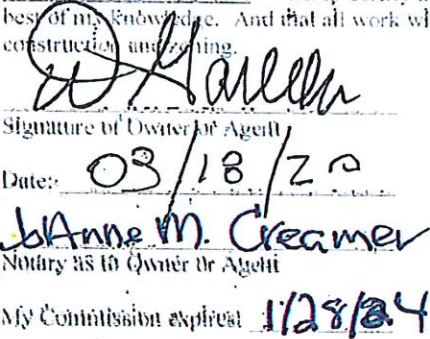 best of my knowledge. And that all work wi
construction and zoning.
Signature of Owner or Agent
Date: 03/18/20
JoAnne M. Creamer
Notary as to Owner or Agent
My Commission expires: 1/28/24